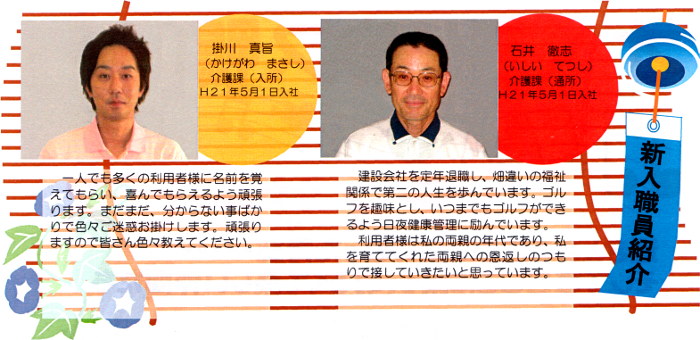 掛川　真旨
（かけがわ　まさし）
介護課（入所）
H21年5月1日入社
一人でも多くの利用者様に名前を覚
えてもらい、喜んでもらえるよう頑張
ります。まだまだ、分からない事ばか
りで色々ご迷惑お掛けします。頑張り
ますので皆さん色々教えてください。
石井　徹志
（いしい　てつし）
介護課（通所）
H21年5月1日入社
建設会社を定年退職し、畑違いの福祉
関係で第二の人生を歩んでいます。ゴル
フを趣味とし、いつまでもゴルフができ
るよう日夜健康管理に励んでいます。
利用者様は私の両親の年代であり、私
を育ててくれた両親への恩返しのつも
りで接していきたいと思っています。
新入職員紹介